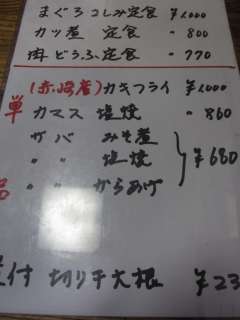 まぐろつしみ定食 ¥1,000
カツ煮 定食 〃 800
肉どうふ定食 〃 770
単 (赤崎産)カキフライ ¥1,000
カマス 塩焼 〃 860
サバ みそ煮
〃 〃 塩焼 } ¥680
品 〃 〃 からあげ
付 切り干大根 ¥23